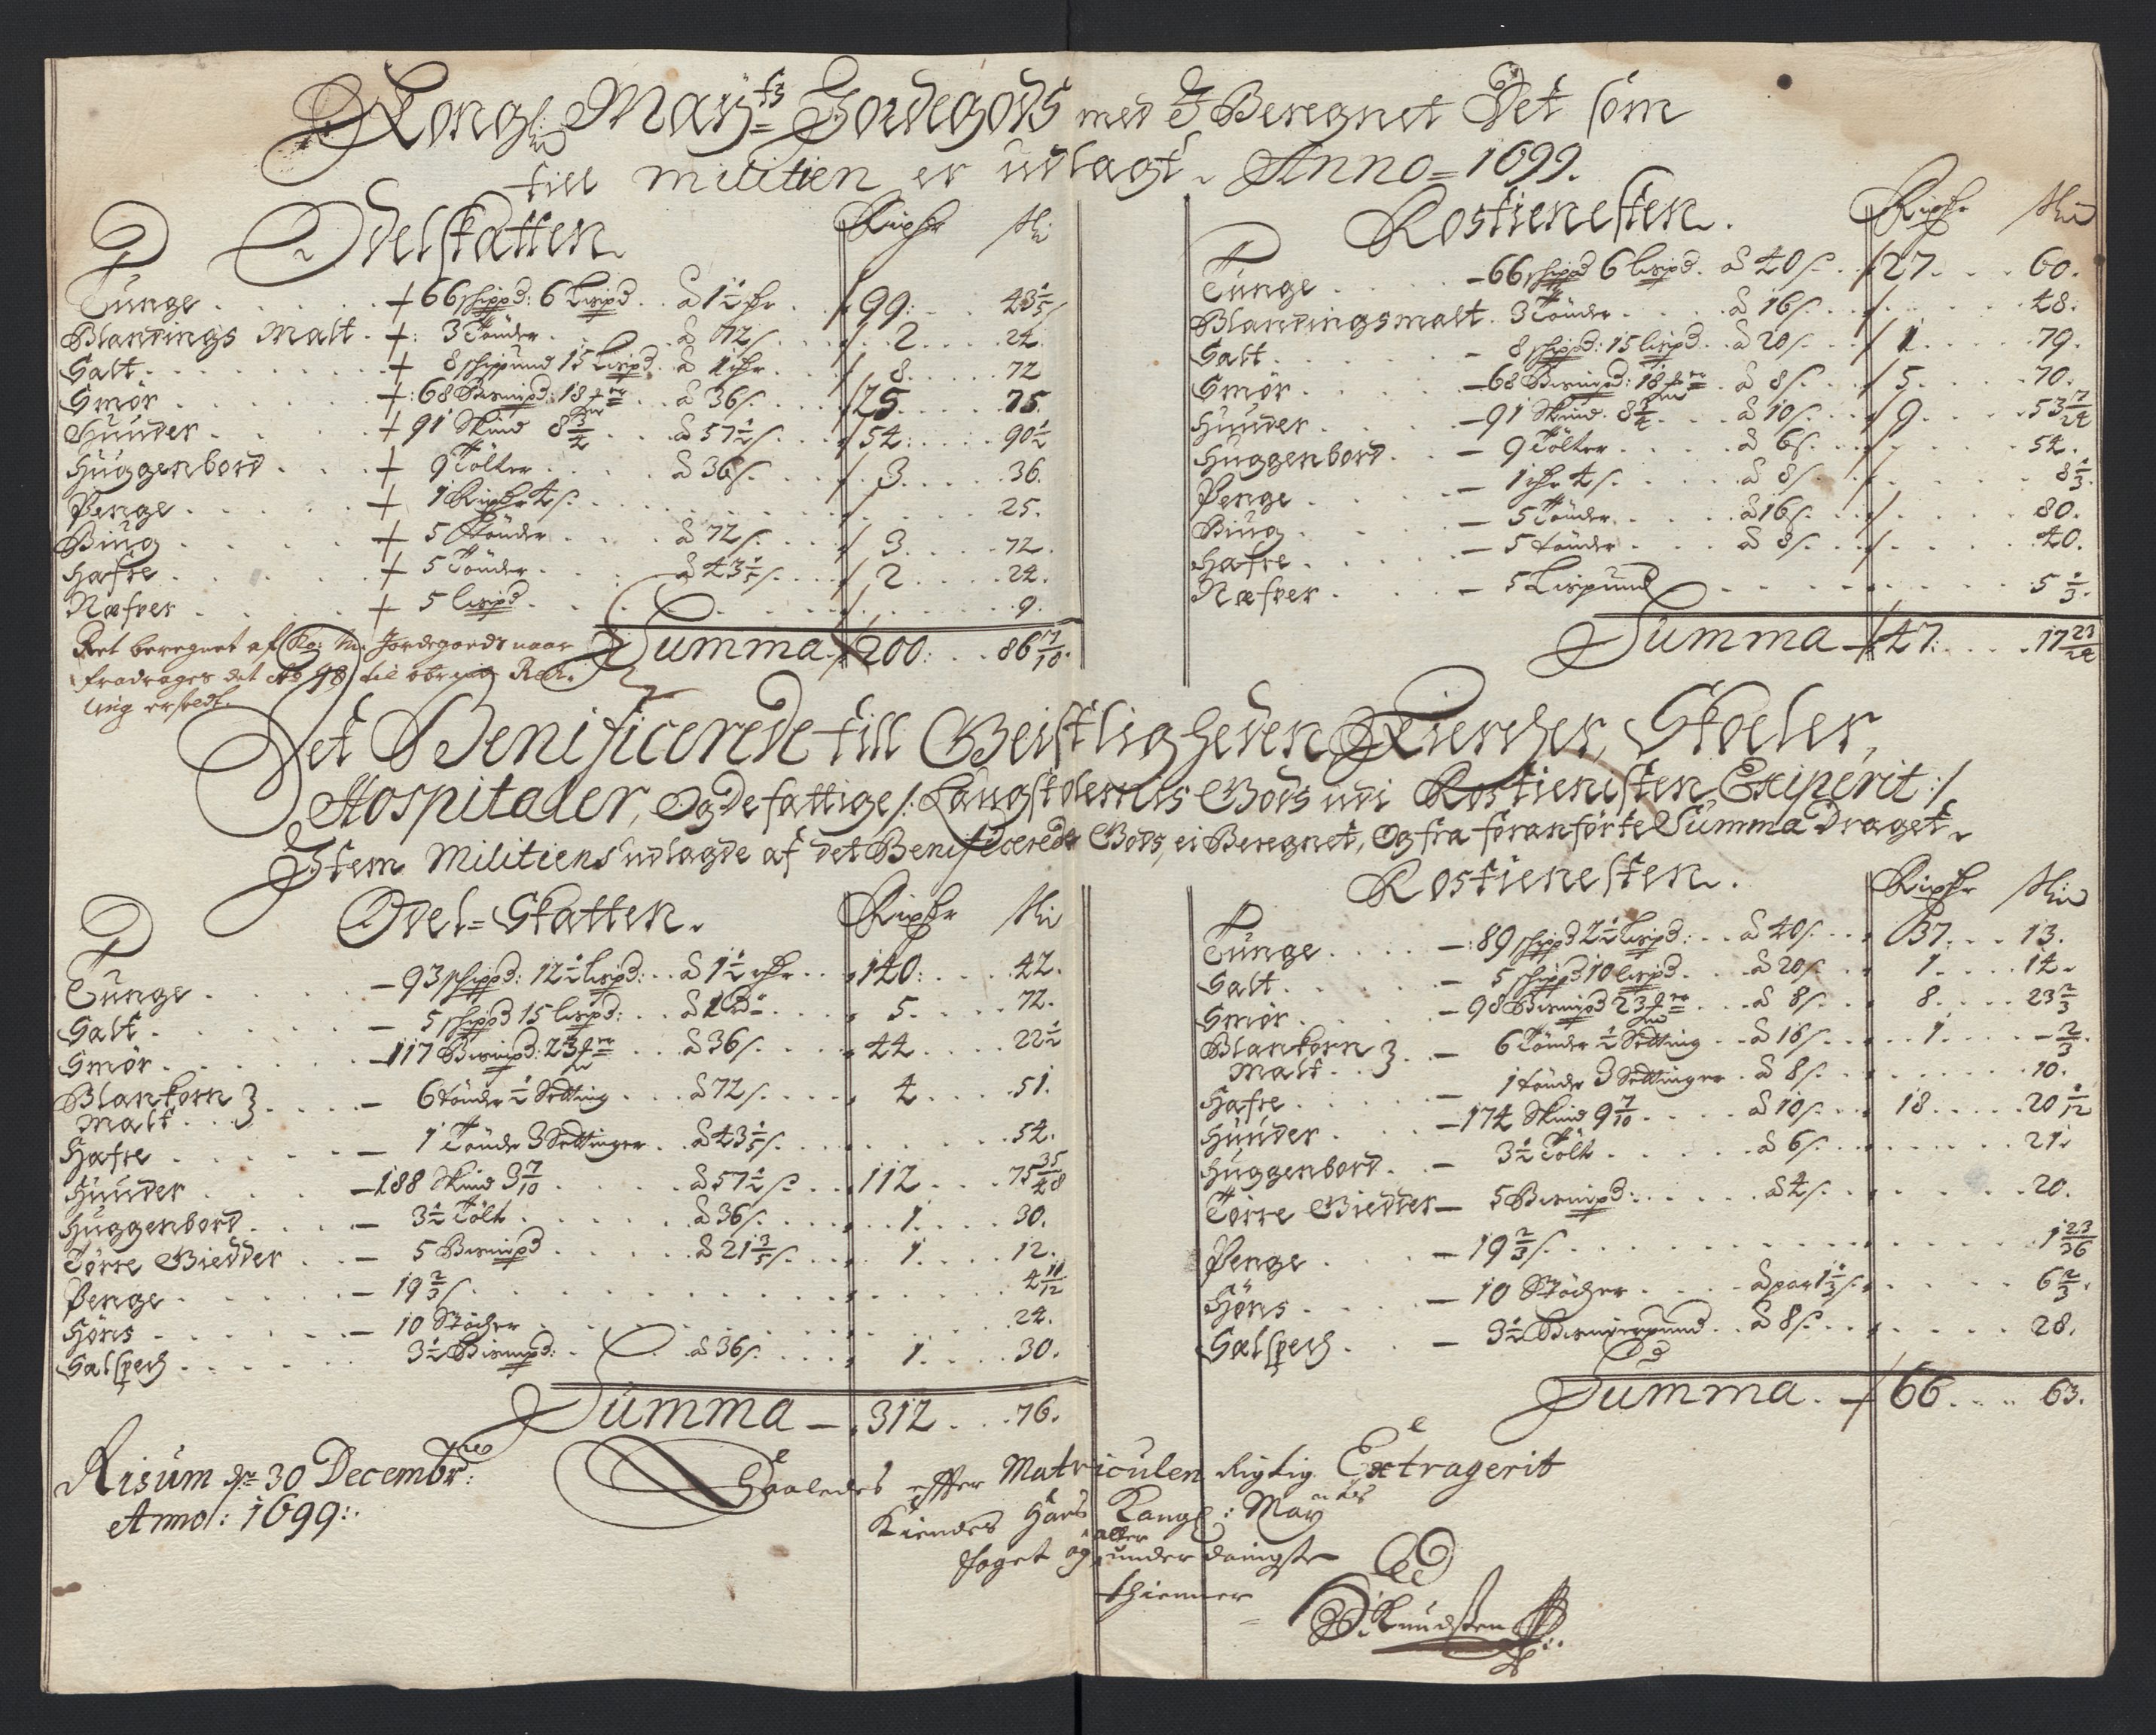 Kongl: Mayts Jordegods med J Beregnet Det som
till militien er udlagt, Anno=1699.
Odelskatten. Rixdr ski
Tunge 66 schippd: 6 Lispd. à 1½ rdr 99: 43⅕
Blandings Malt. 3 Tönder à 72 s. 2 24.
Salt 8 schippund 15 Lispd. à 1 rdr 8 72
Smör 68 Bismrpd: 18 mr à 36 s. 25 75.
Huuder 91 Skind 8¾ à 57½ s. 54: 90½
Huggenbord 9 Tölter à 36 s. 3 36.
Penge 1 Rixdr 4 s. 25.
Biug 5 Tönder à 72 s. 3 72.
Hafre 5 Tönder à 43⅕ s. 2 24.
Næfver 5 lispd. 9.
Summa 200: 86 7/10.
Ret beregnet af Ko: M: Jordegoeds naar
fradrages det
Rostienesten. Rixdr skid
Tunge 66 schippd 6 lispd. à 40 s. 27. 60.
Blandingsmalt. 3 Tönder à 16 s. 48.
Salt 8 schippd: 15 lispd. à 20 s. 1 79.
Smör 68 Bismrpd: 18 mr à 8 s. 5. 70.
Huuder 91 Skind. 8¾ à 10 s. 9. 53 17/24
Huggenbord. 9 Tölter à 6 s. 54.
Penge 1 rdr 4 s. à 8 s. 8⅓.
Biug 5 Tönder. à 16 s. 80.
Hafre 5 tönder à 8 s. 40.
Næfver 5 Lispund 5⅓.
Summa 47: 17 23/24
Det Benificerede till Geistligheden Kiercher, Skoeler,
Hospitaler, Og de fattige /: Laugstolernis Gods udi Rostienisten Exiperit :/
Item Militiens udlagde af det Benificerede Gods, ei Beregnet, Og fra foranförte Summa Draget.
Odel=Skatten. Rixdr ski
Tunge 93 schippd: 12½ Lispd: à 1½ rdr 140: 42.
Salt 5 schippd 15 lispd: à 1 rdr 5. 72.
Smör 117 Bismrpd: 23 mr à 36 s. 44 22½
Blankorn
Malt 6 tönder ½ Setting à 72 s. 4 51.
Hafre 1 Tönde 3 Settinger à 43⅕ s. 54.
Huuder 188 Skind 3 7/10 à 57½ s. 112 75 35/48
Huggenbord. 3½ Tölt à 36 s. 1. 30.
Törre Giedder 5 Bismrpd à 21⅗ s. 1 12.
Penge 19⅔ s. 4 11/12
Höns 10 Stöcher 24.
Sælspech 3½ Bismrpd: à 36 s. 1 30.
Summa 312 76.
Rostienesten. Rixdr skid
Tunge 89 schippd 2½ Lispd: à 40 s. 37. 13.
Salt 5 schippd 10 lispd. à 20 s. 1 14.
Smör 98 Bismrpd 23 mr à 8 s. 8. 23⅔
Blankorn
Malt 6 Tönder ½ Setting à 16 s. 1. ⅔.
Hafre 1 tönde 3 Settinger à 8 s. 10.
Huuder 174 Skind 9 7/10 à 10 s. 18 20 1/12
Huggenbord. 3½ Tölt à 6 s. 21.
Törre Giedder 5 Bismrpd: à 4 s. 20.
Penge 19⅔ s. 1 23/36
Höns 10 Stöcher à par 1⅓ s. 6⅔.
Sælspech 3½ Bismerpund. à 8 s. 28.
Summa. 66 63.
Risum dn 30 Decembr:
Anno: 1699:
Saaledes efter Matriculen Rigtig Extragerit
Kiendes Hans Kongl: May
foget og aller underdanigste
thienner
Knudsten